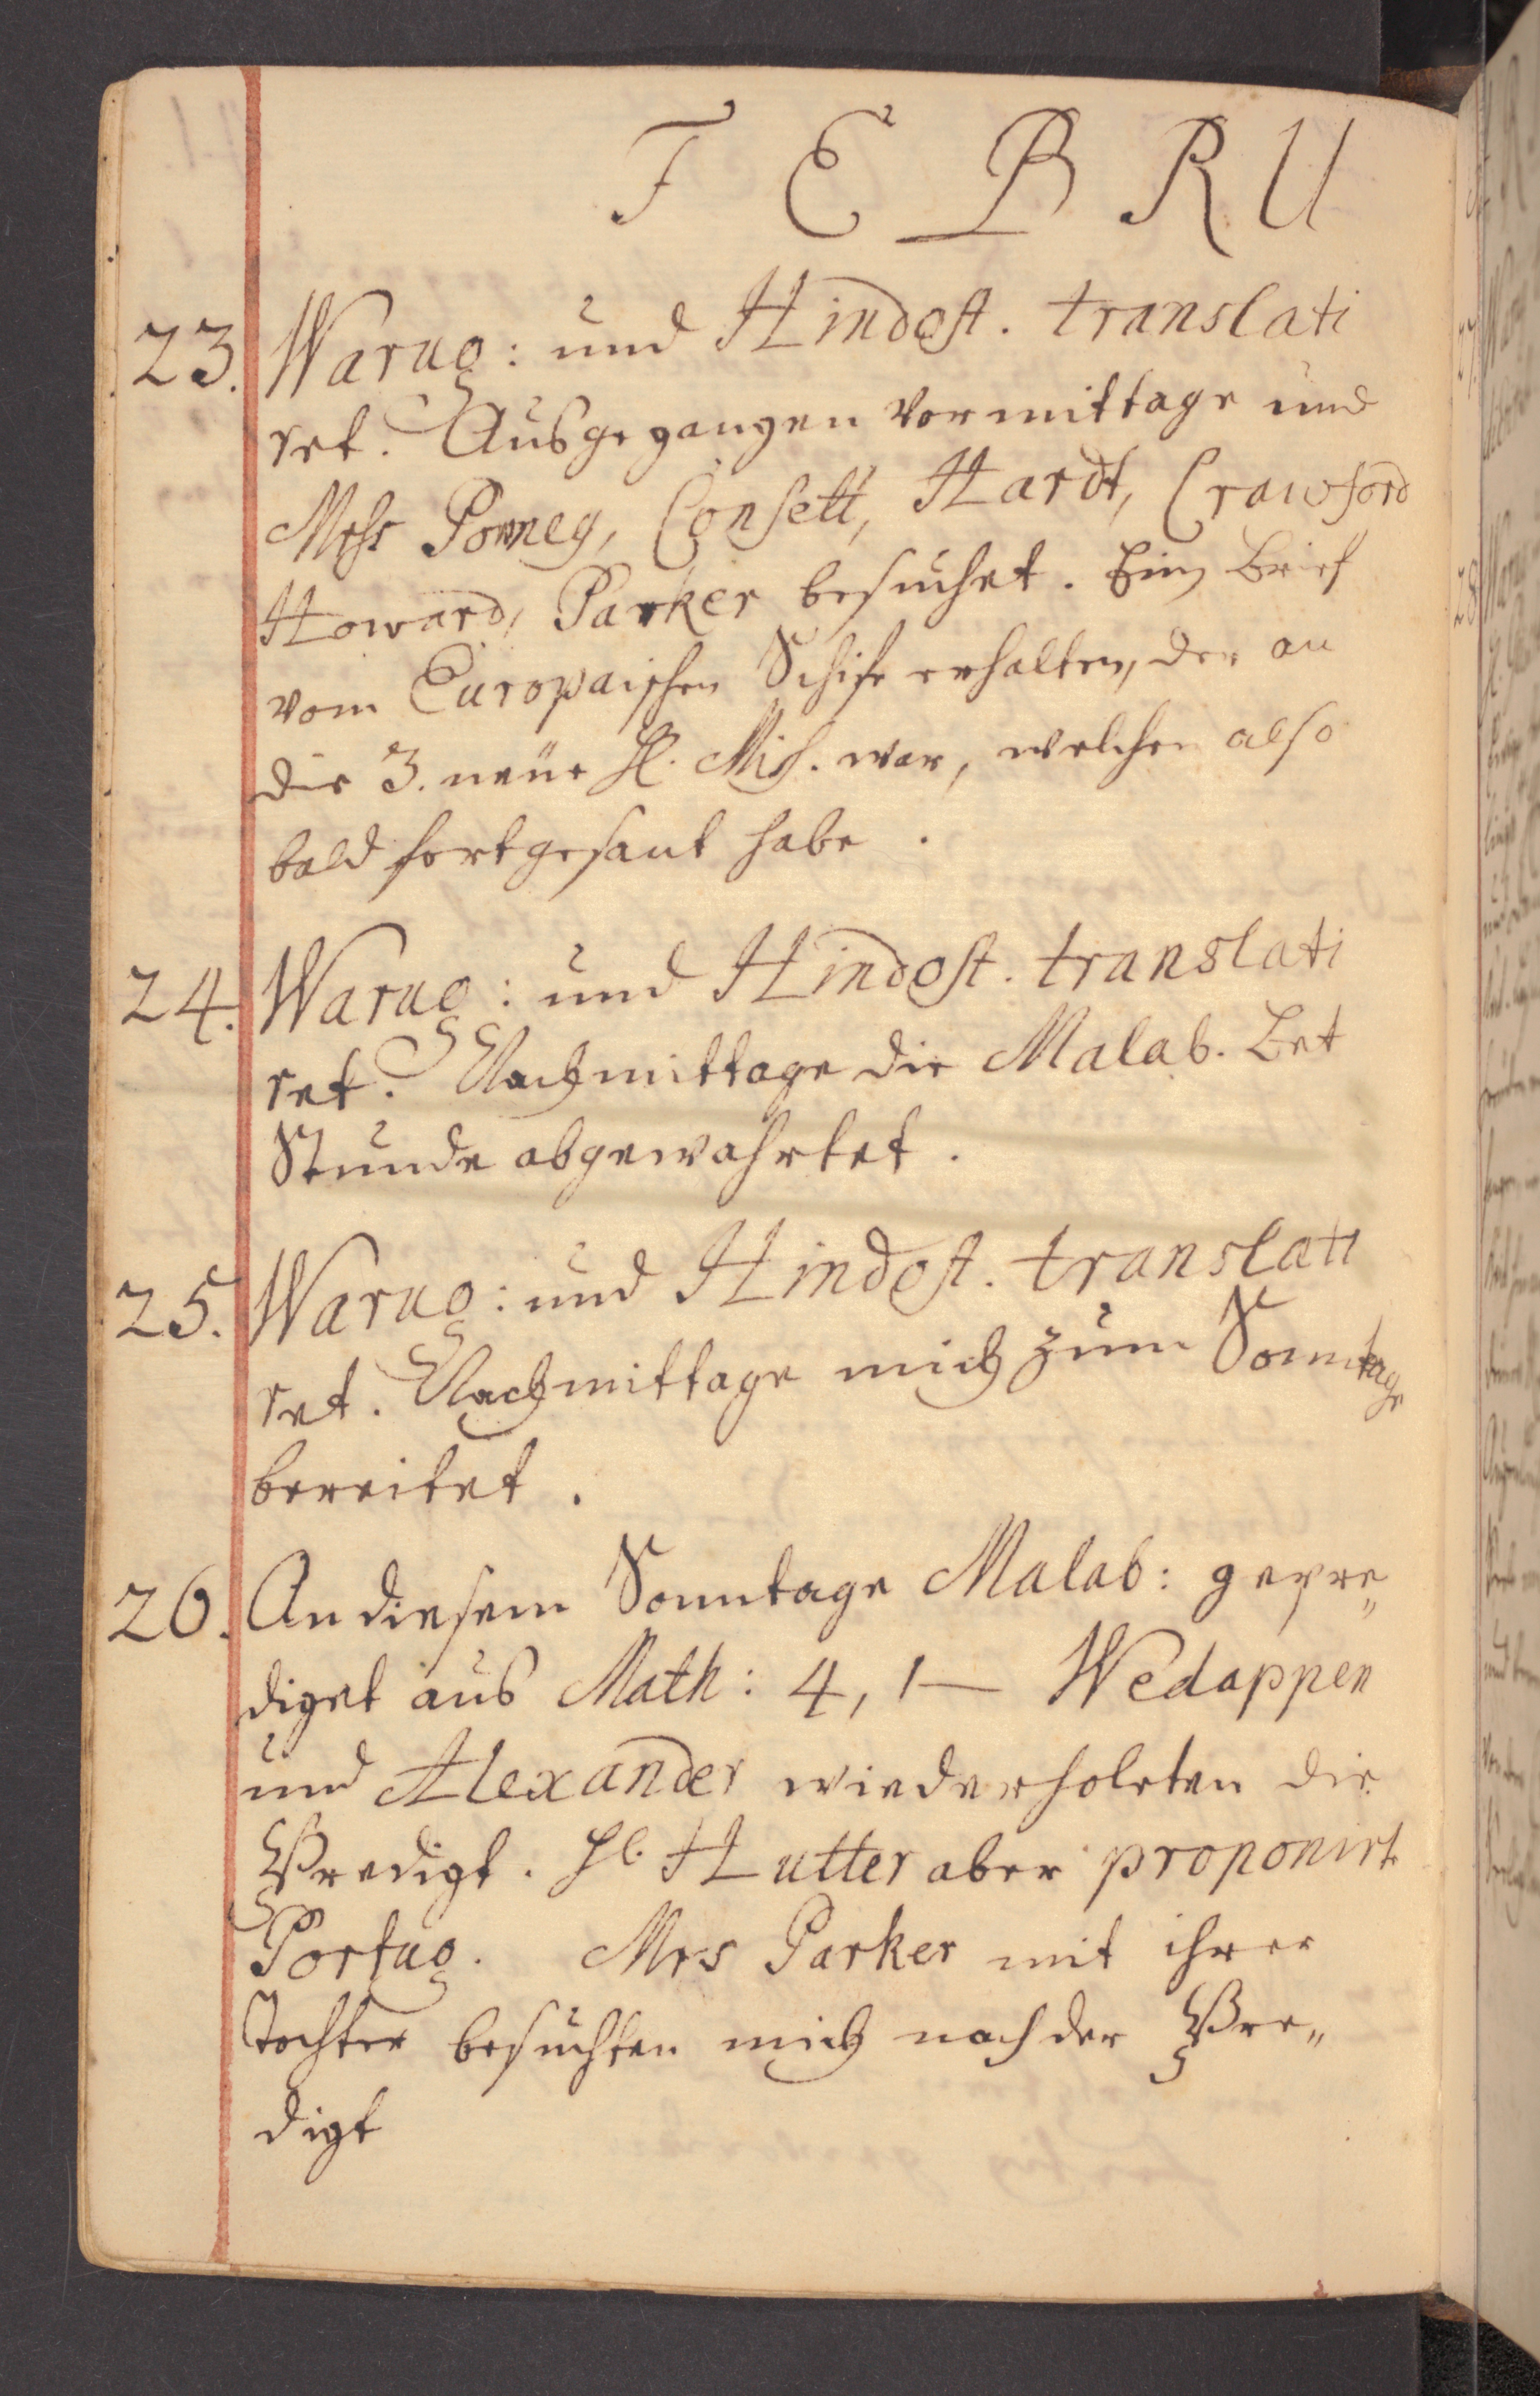 FEBRU
23. Warug: und Hindost. translati
ret. Ausgegangen Vormittage und
Mess Powney, Consett, Hardt, Crawford
Howard, Parker besuchet. Einen Brief
vom Europaischen Schife erhalten, der an
die 3. neue H. Miss. war, welchen also
bald fortgesant habe.
24. Warug: und Hindost. translati
ret. Nachmittage die Malab. Bet
Stunde abgewahrtet.
25. Warug: und Hindost. translati
ret. Nachmittage mich zum Sonntage
bereitet.
26. An diesem Sonntage Malab: gepre„
diget aus Math: 4, 1— Wedappen
und Alexander wiederholeten die
Predigt. H. Hutter aber proponirt
Portug. Mrs Parker mit ihrer
Tochter besuchten mich nach der Pre„
digt